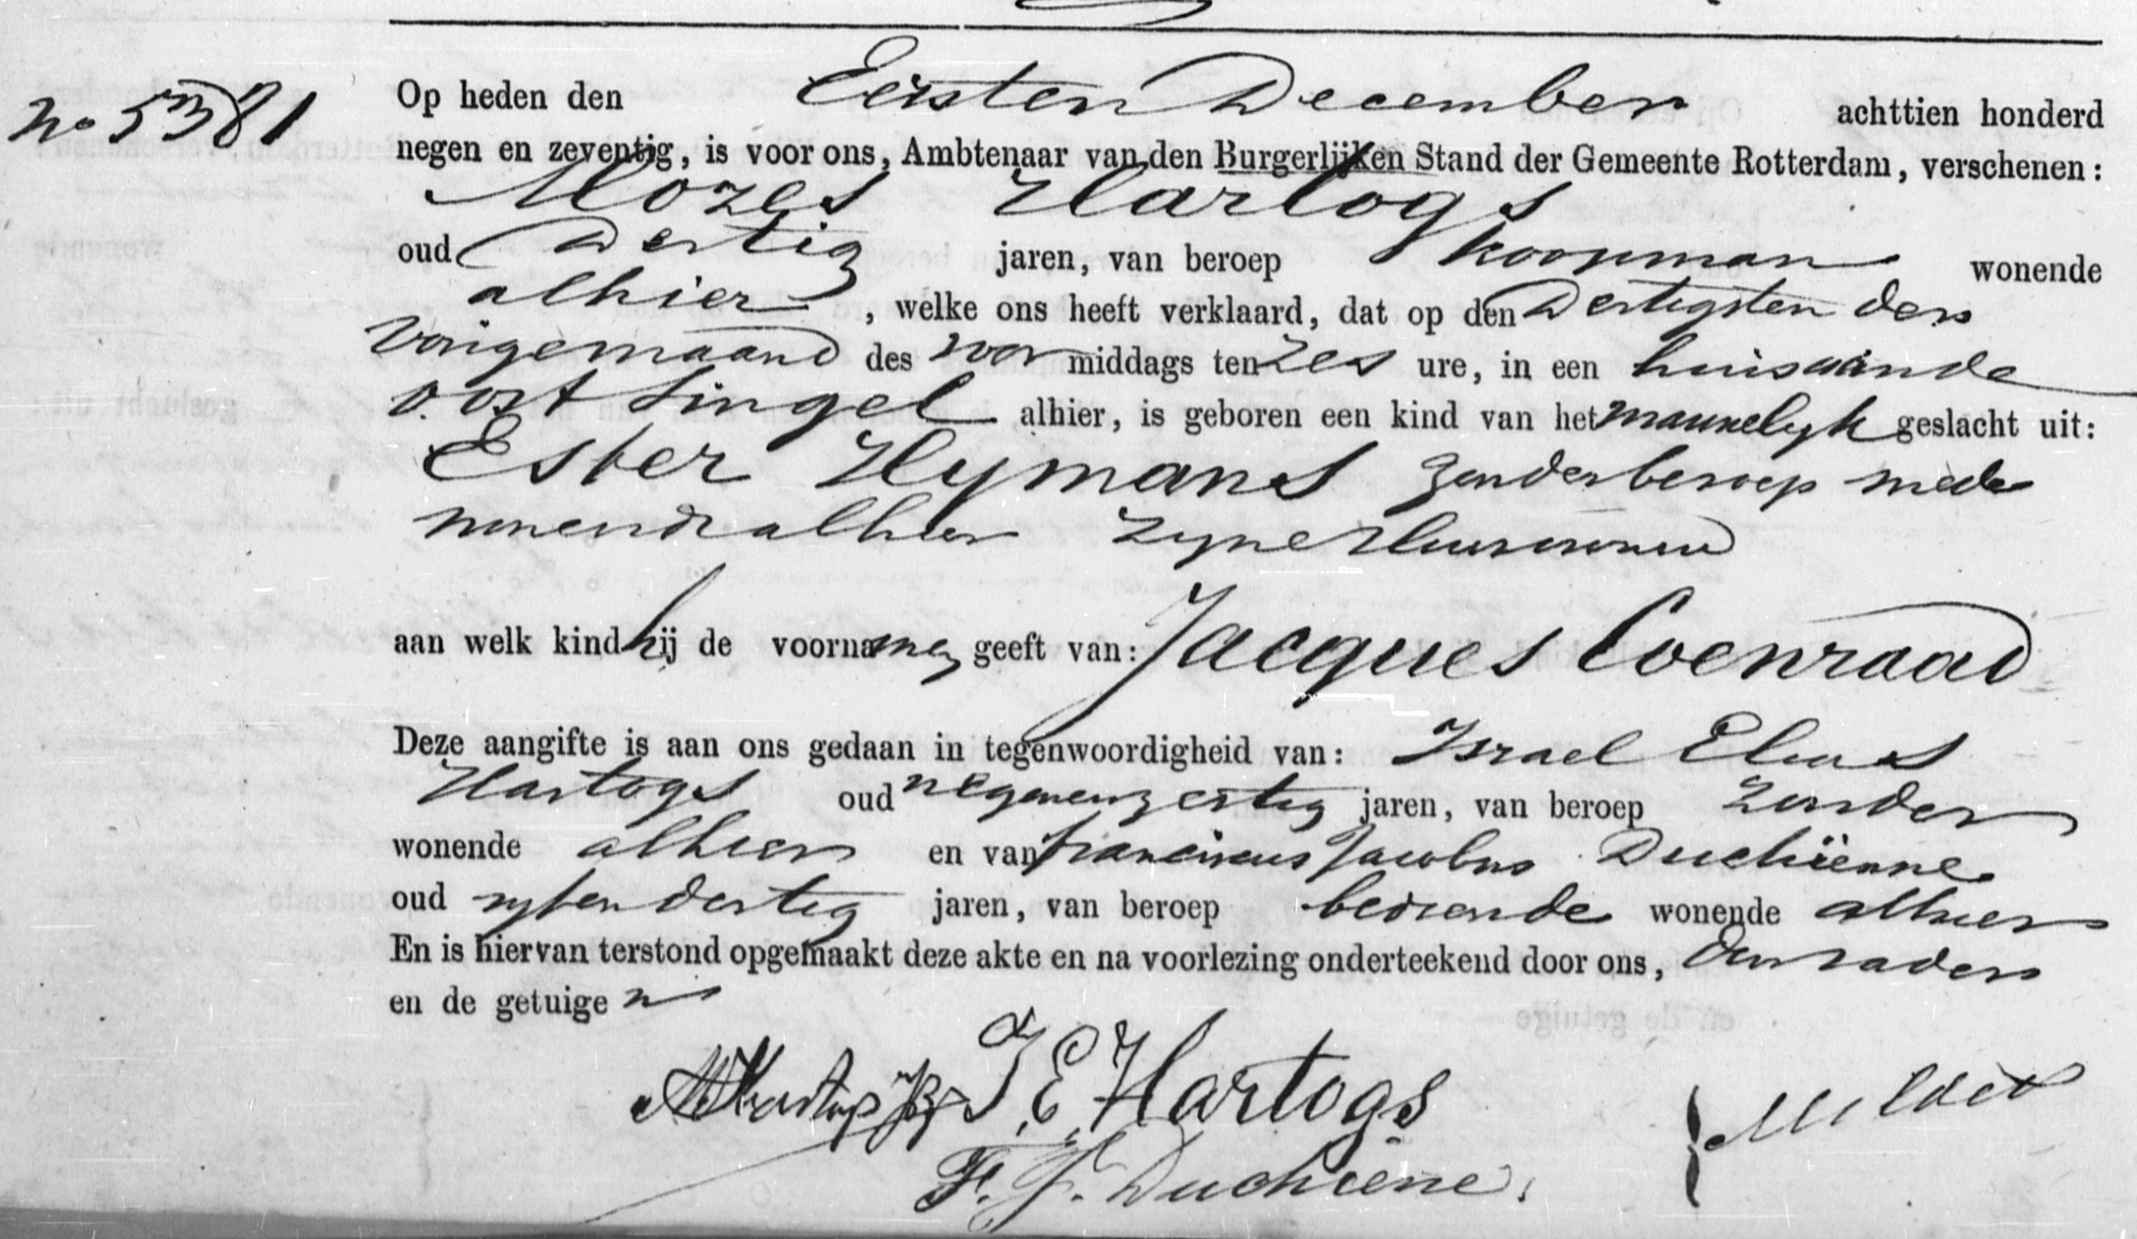 No 5381
Op heden den Eersten December achttien honderd
negen en zeventig, is voor ons, Ambtenaar van den Burgerlijken Stand der Gemeente Rotterdam, verschenen:
Mozes Hartogs
oud Dertig jaren, van beroep koopman wonende
alhier, welke ons heeft verklaard, dat op den Dertigsten der
vorige maand des voor middags ten zes ure, in een huis aan de
oost Singel alhier, is geboren een kind van het mannelyk geslacht uit:
Ester Hymans zonder beroep mede
wonende alhier zyne Huisvrouw
aan welk kind hij de voornamen geeft van: Jacques Coenraad
Deze aangifte is aan ons gedaan in tegenwoordigheid van: Israel Elias
Hartogs oud jaren, van beroep zonder
wonende alhier en van Franciscus Jacobus Duchienne
oud vyfendertig jaren, van beroep bediende wonende alhier
En is hiervan terstond opgemaakt deze akte en na voorlezing onderteekend door ons, den vader
en de getuigen
M Hartogs I. E. Hartogs
F. J. Duchiene.